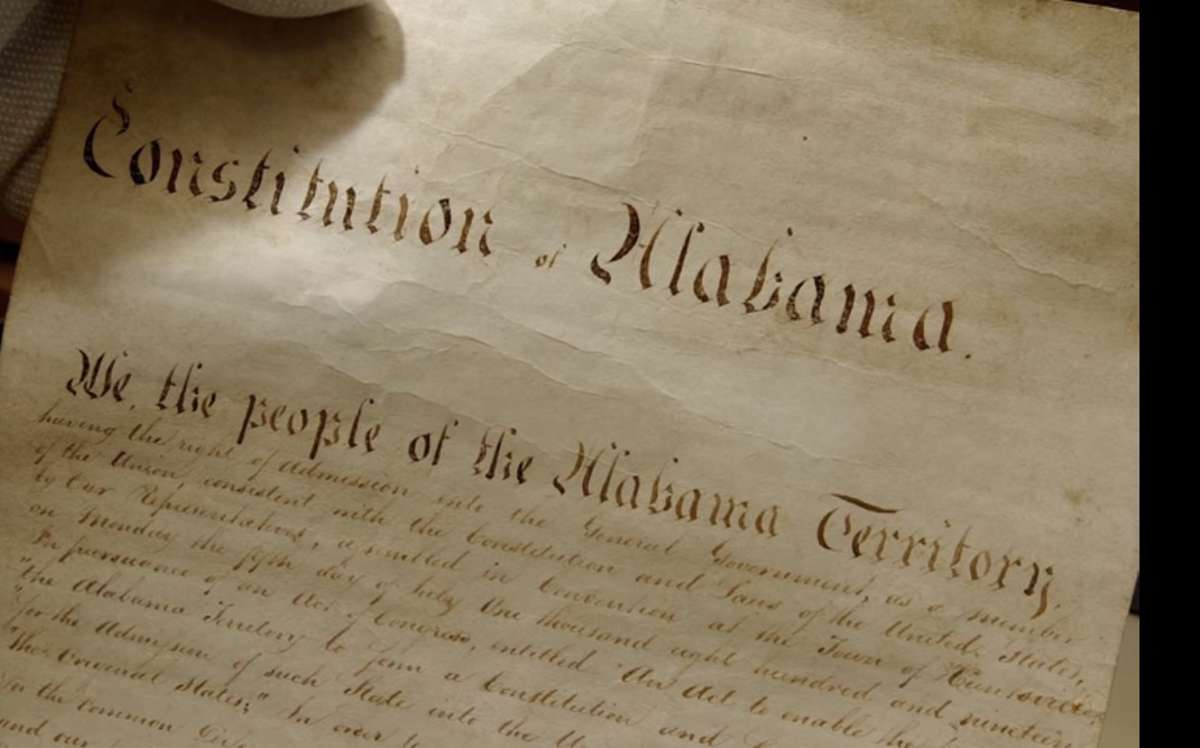 Constitution of Alabama.
We, the people of the Alabama Territory,
having the right of Admission into the General Government, as a member
of the Union, consistent with the Constitution and Laws of the United States,
by Our Representatives, assembled in Convention at the Town of Huntsville
on Monday the fifth day of July One thousand eight hundred and nineteen
In pursuance of an Act of Congress, entitled "An Act to enable the
"the Alabama Territory to form a Constitution and
"for the Admission of such State into the
"the original States;" In order to
for the common
and our